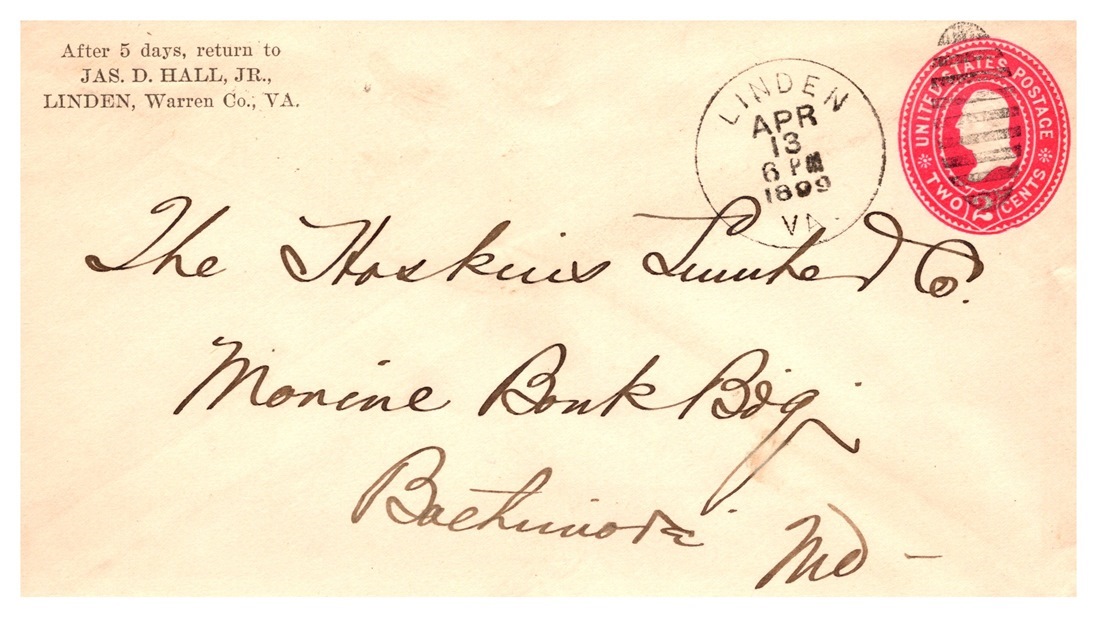 After 5 days, return to
JAS. D. HALL, JR.,
LINDEN, Warren Co., VA.
LINDEN
APR
13
6 PM
1899
VA.
UNITED STATES POSTAGE
TWO 2 CENTS
The Hoskins Lumber Co.
Marine Bank Bldg
Baltimore
Md